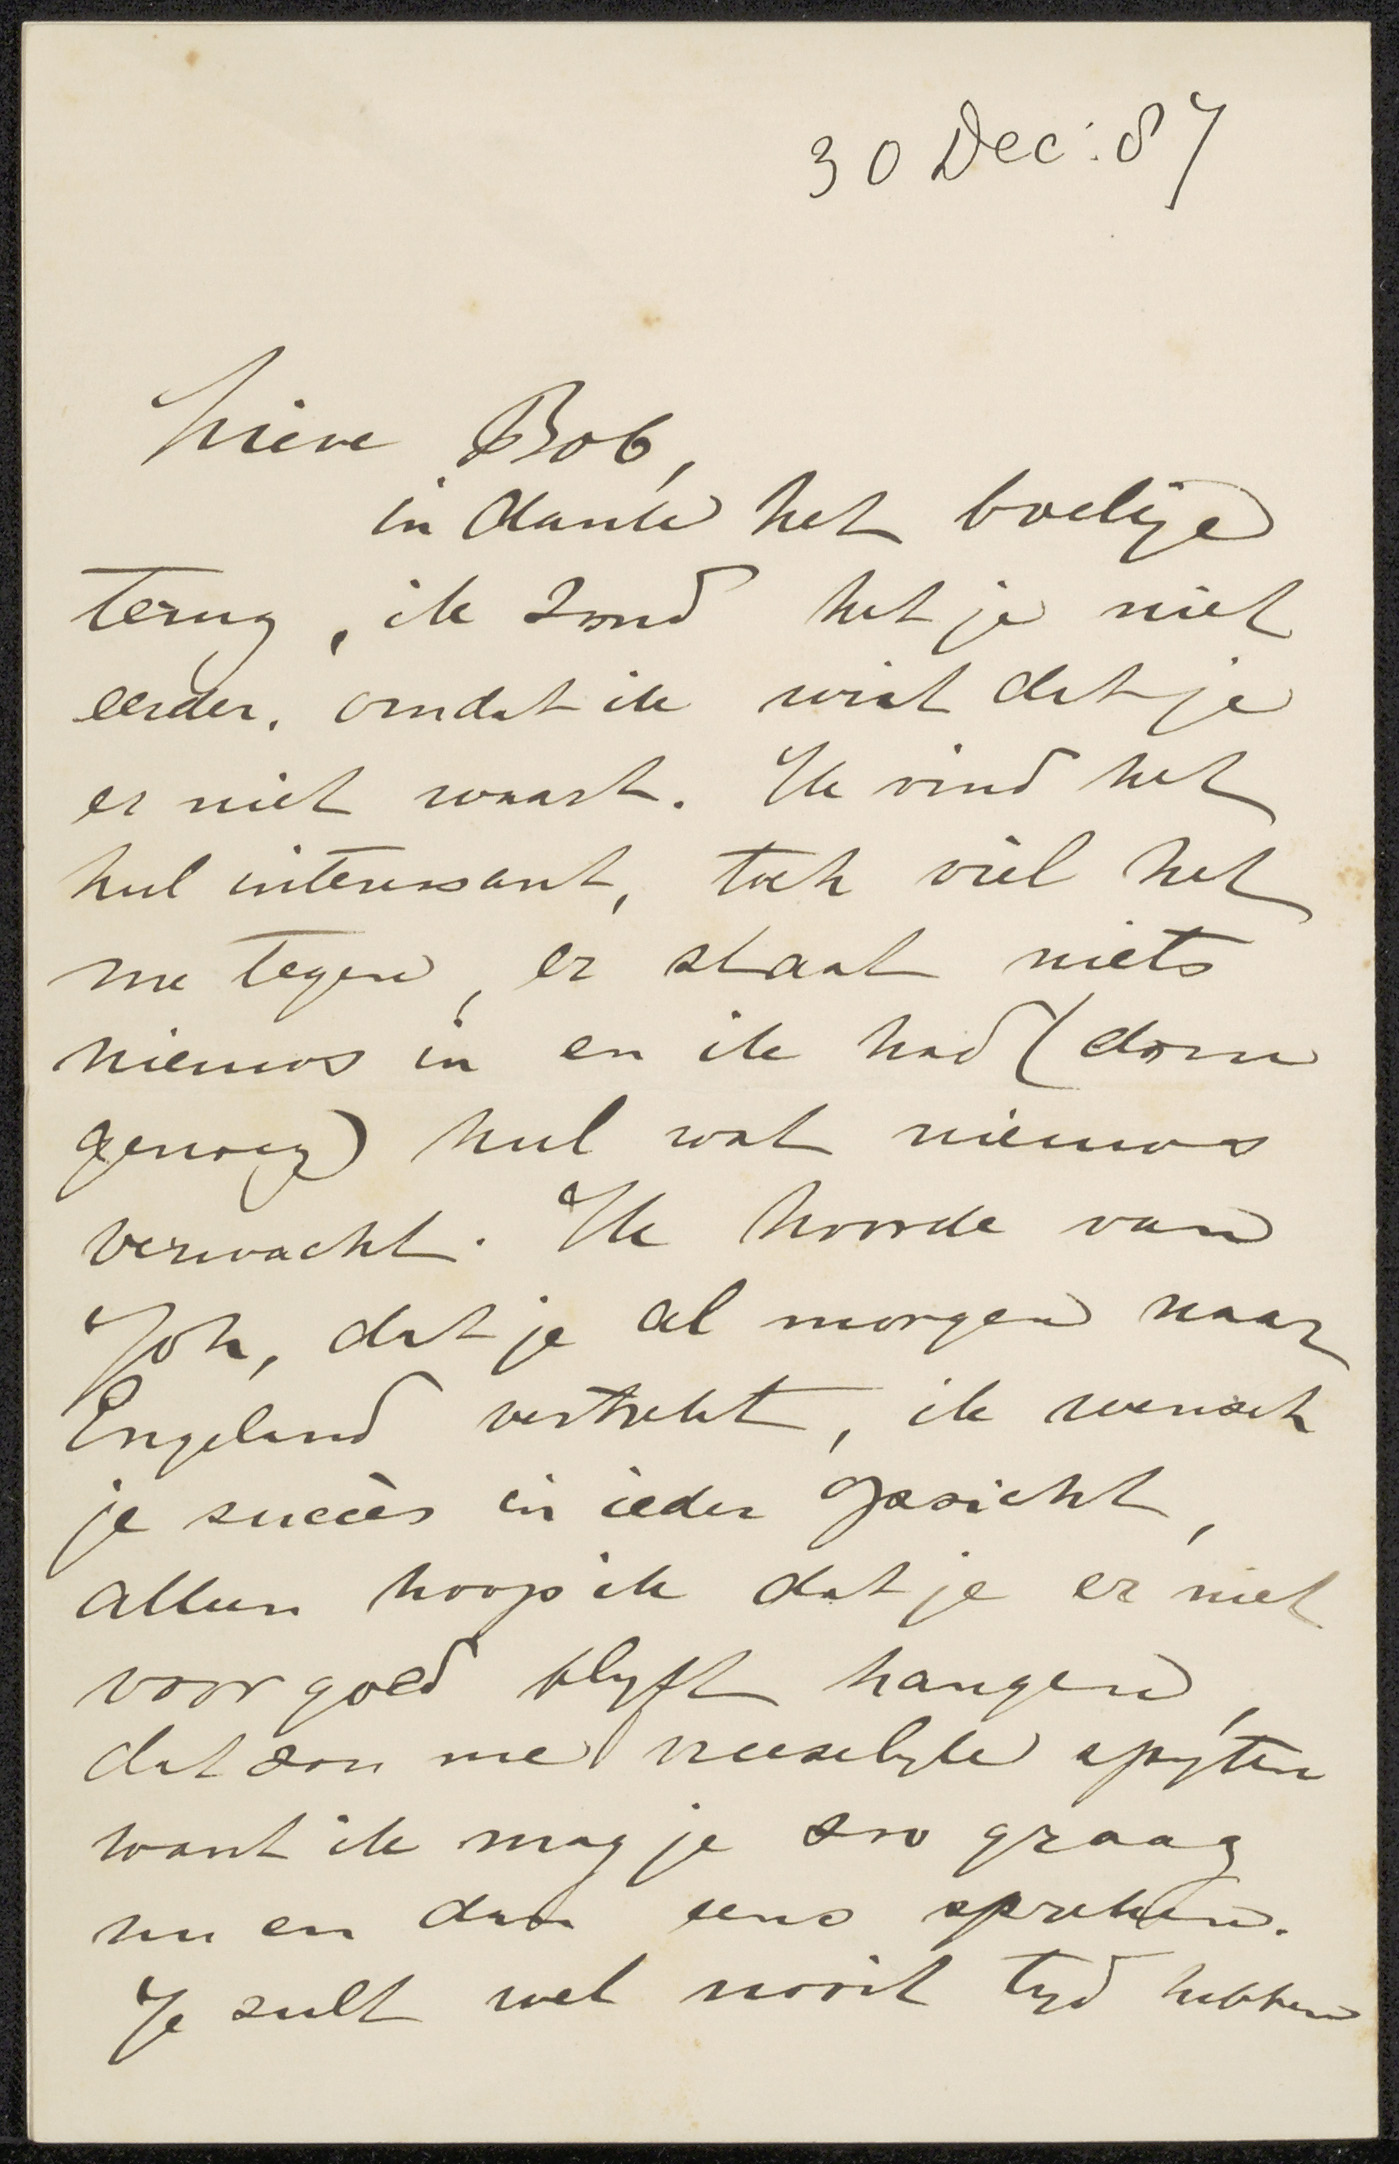 30 Dec: 87
Lieve Bob,
in dank het boekje
terug, ik zond het je niet
eerder, omdat ik wist dat je
er niet waart. Ik vind het
heel interessant, toch viel het
me tegen, er staat niets
nieuws in en ik had (dom
genoeg) heel wat nieuws
verwacht. Ik hoorde van
Joh, dat je al morgen naar
Engeland vertrekt, ik wensch
je succès in ieder opzicht,
alleen hoop ik dat je er niet
voor goed blyft hangen,
dat zou me vreeselyk spyten
want ik mag je zoo graag
nu en dan eens spreken.
Je zult wel nooit tyd hebben